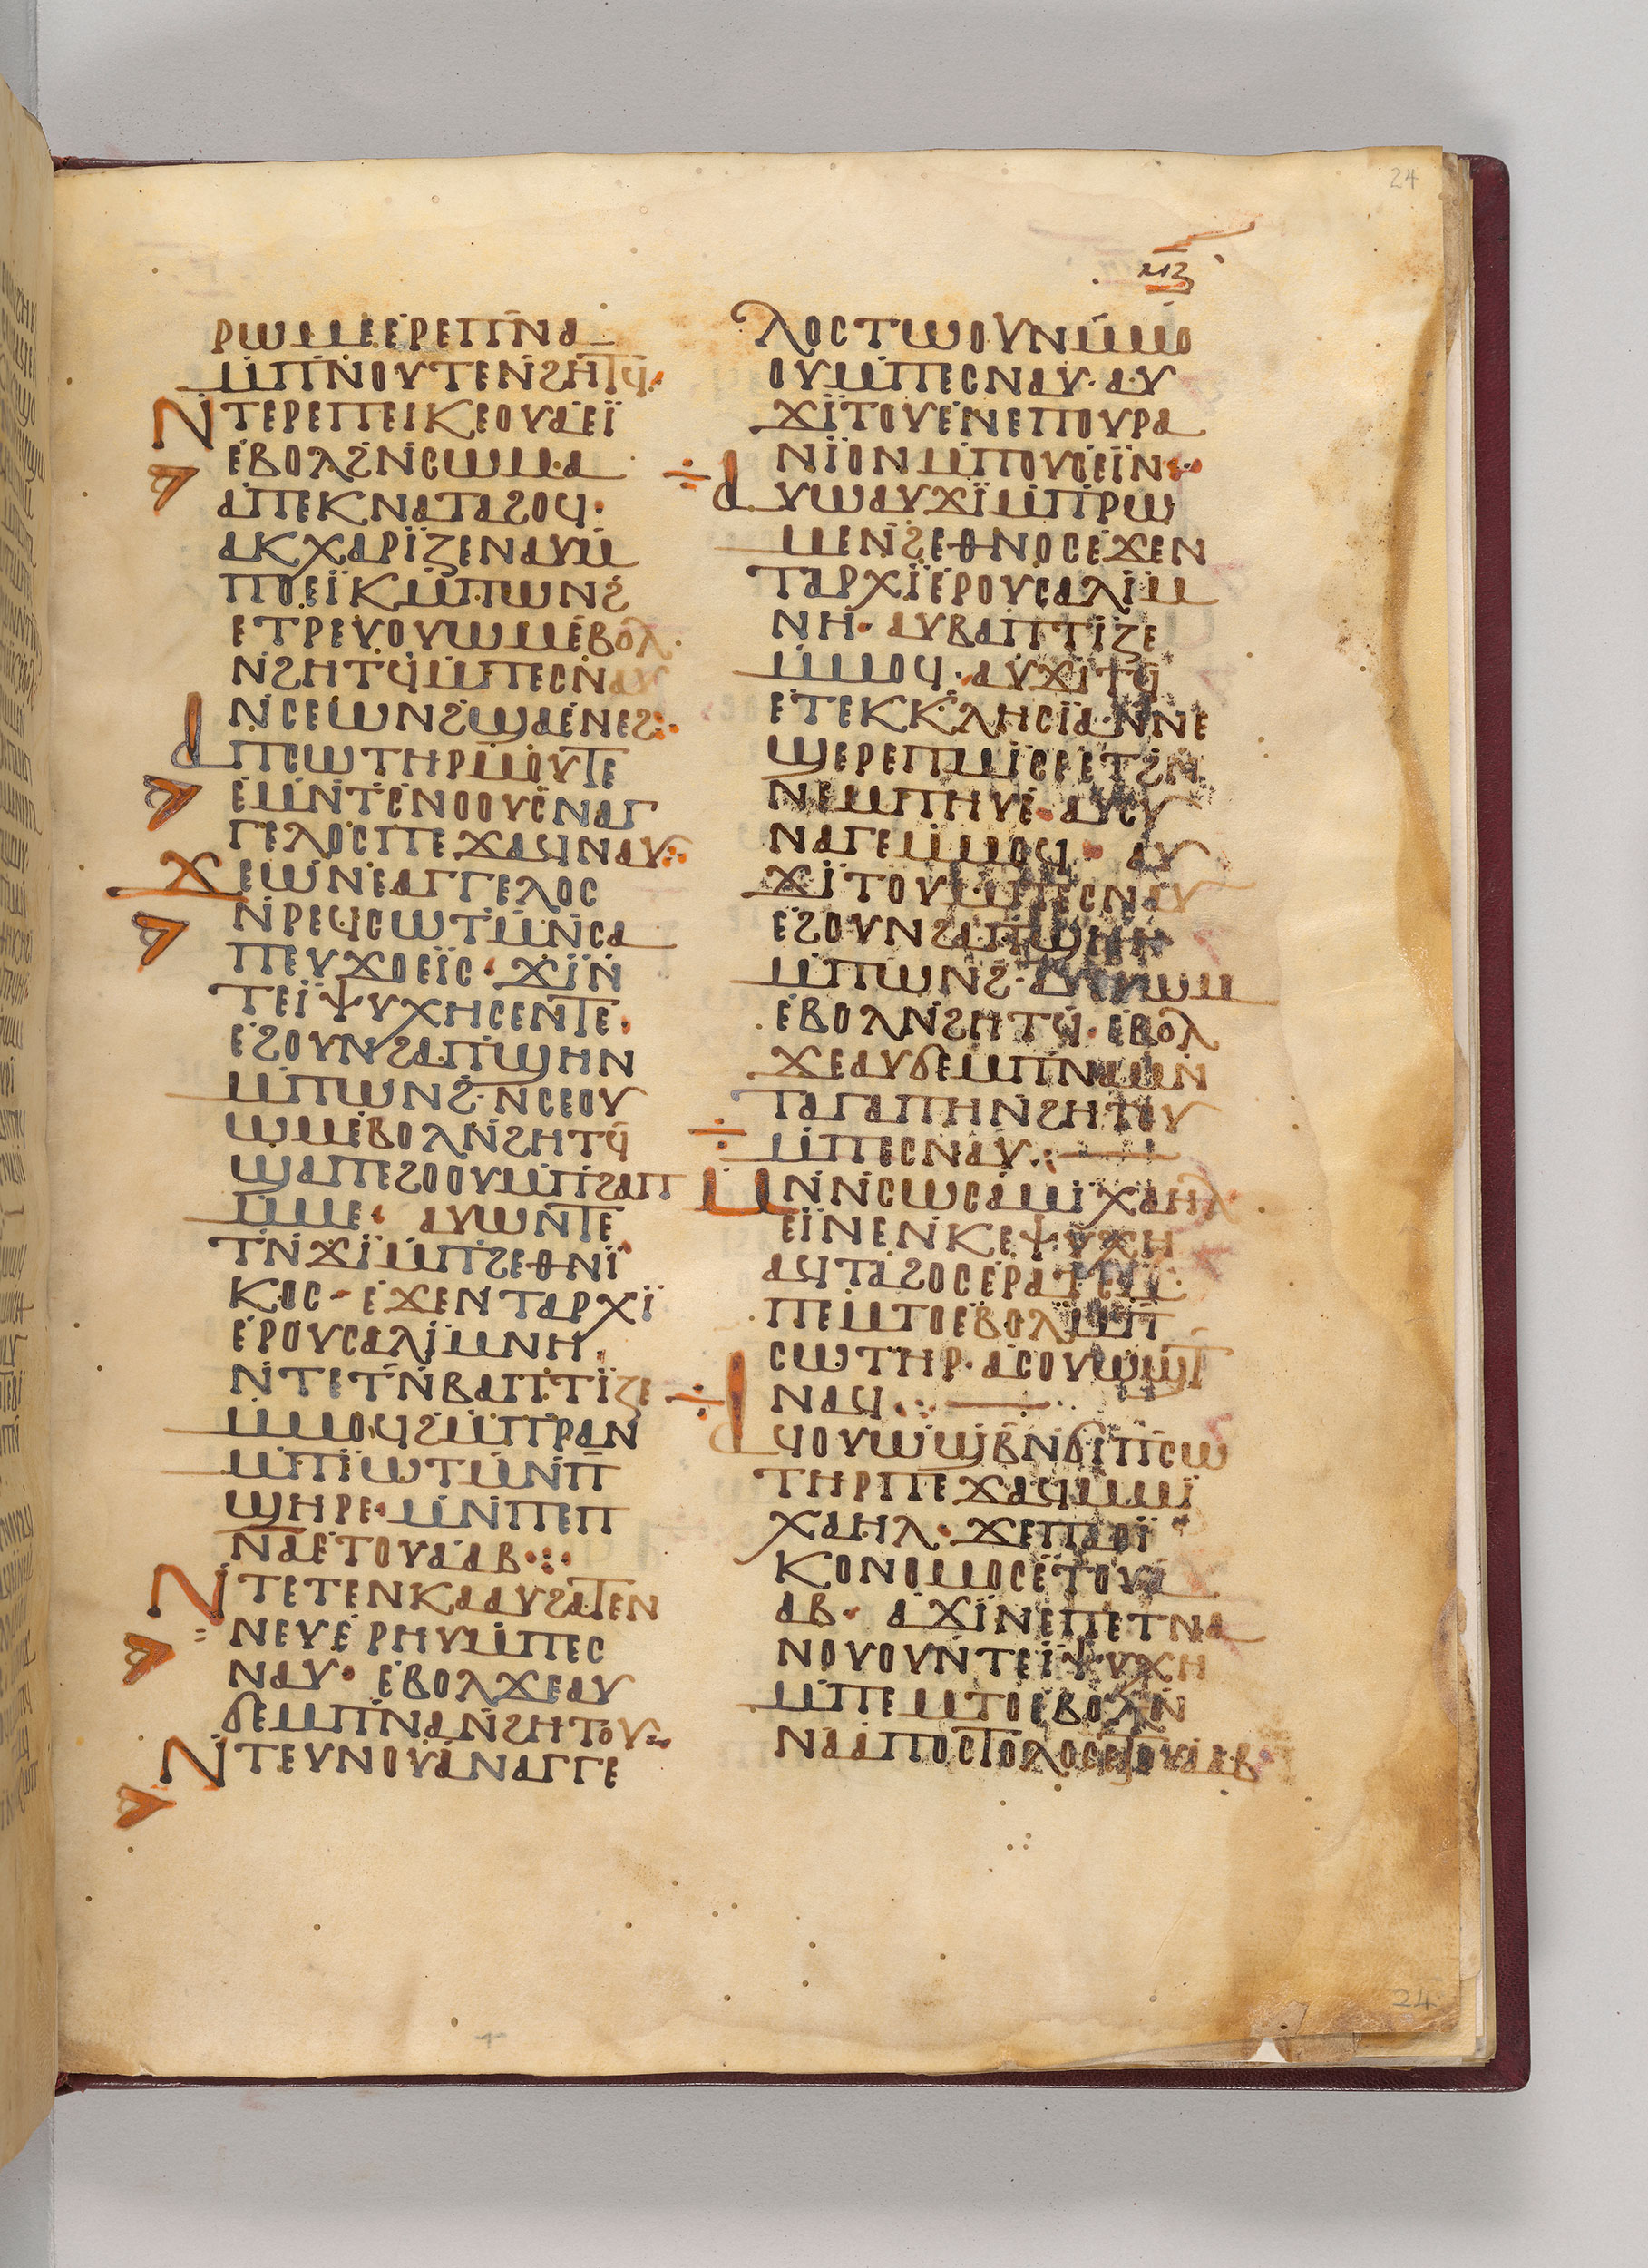 24
ⲙⲍ
ⲣⲱⲙⲉⲉⲣⲉⲡⲡ̅ⲛ̅ⲁ̅
ⲙ̇ⲡⲛ̇ⲟⲩⲧⲉⲛ̇ϩⲏⲧϥ̅·
ⲛ̇ⲧⲉⲣⲉⲡⲉⲓⲕⲉⲟⲩⲁⲉⲓ̈
ⲉⲃⲟⲗϩⲛ̇ⲥⲱⲙⲁ
ⲁⲡⲉⲕⲛⲁⲧⲁϩⲟϥ·
ⲁⲕⲭⲁⲣⲓ̈ⲍⲉⲛⲁⲩⲙ̇
ⲡⲟⲉⲓ̈ⲕⲙ̇ⲡⲱⲛϩ̇
ⲉⲧⲣⲉⲩⲟⲩⲱⲙⲉ̇ⲃⲟⲗ·
ⲛ̇ϩⲏⲧϥ̅ⲙ̇ⲡⲉⲥⲛⲁⲩ
ⲛ̇ⲥⲉⲱⲛϩ̇ϣⲁⲉⲛⲉϩ:·
ⲁⲡⲥⲱⲧⲏⲣⲙⲟⲩⲧⲉ
ⲉⲙⲛ̇ⲧⲥⲛⲟⲟⲩⲥⲛ̇ⲁⲅ
ⲅⲉⲗⲟⲥⲡⲉϫⲁϥⲛⲁⲩ:·
ϫⲉⲱⲛⲉⲁⲅⲅⲉⲗⲟⲥ
ⲛ̇ⲣⲉϥⲥⲱⲧⲙ̇ⲛ̇ⲥⲁ
ⲡⲉⲩϫⲟⲉⲓ̈ⲥ· ϫⲓ̈ⲛ̇
ⲧⲉⲓ̈ⲯⲩⲭⲏⲥⲉⲛⲧⲉ·
ⲉϩⲟⲩⲛϩⲁⲡϣⲏⲛ
ⲙ̇ⲡⲱⲛϩ̇·ⲛⲥⲉⲟⲩ
ⲱⲙⲉ̇ⲃⲟⲗⲛ̇ϩⲏⲧϥ̅
ϣⲁⲡⲉϩⲟⲟⲩⲙ̇ⲡϩⲁⲡ
ⲙ̇ⲙⲉ· ⲁⲩⲱⲛ̇ⲧⲉ
ⲧⲛ̇ϫⲓ̈ⲙ̇ⲡϩⲉⲑⲛⲓ̈
ⲕⲟⲥ· ⲉ̇ϫⲉⲛⲧⲁⲣⲭⲓ̈
ⲉ̇ⲣⲟⲩⲥⲁⲗⲓ̈ⲙⲛⲏ·
ⲛ̇ⲧⲉⲧⲛ̇ⲃⲁⲡⲧⲓ̈ⲍⲉ
ⲙ̇ⲙⲟϥϩⲙ̇ⲡⲣⲁⲛ
ⲙ̇ⲡⲓ̈ⲱⲧⲙ̇ⲛ̇ⲡ̅
ϣⲏⲣⲉ·ⲙ̇ⲛ̇ⲡⲉⲡ
ⲛⲁⲉⲧⲟⲩⲁⲁⲃ·:·
ⲛ̇ⲧⲉⲧⲉⲛⲕⲁⲁⲩϩⲁⲧⲉⲛ
ⲛⲉⲩⲉ̇ⲣⲏⲩⲙ̇ⲡⲉⲥ
ⲛⲁⲩ· ⲉ̇ⲃⲟⲗϫⲉⲁⲩ
ϭⲉⲙⲡⲛⲁⲛ̇ϩⲏⲧⲟⲩ:·
ⲛ̇ⲧⲉⲩⲛⲟⲩⲁ̇ⲛⲁⲅⲅⲉ
ⲗⲟⲥⲧⲱⲟⲩⲛⲙ̇ⲙⲟ
ⲟⲩⲙ̇ⲡⲉⲥⲛⲁⲩ·ⲁⲩ
ϫⲓ̈ⲧⲟⲩⲉ̇ⲛⲉⲡⲟⲩⲣⲁ
ⲛⲓ̈ⲟⲛⲙ̇ⲡⲟⲩⲟ̇ⲉⲓ̈ⲛ:·
ⲁⲩⲱⲁⲩϫⲓ̈ⲙ̇ⲡⲣⲱ
ⲙⲉⲛ̇ϩⲉⲑⲛⲟⲥⲉ̇ϫⲉⲛ
ⲧⲁⲣⲭⲓ̈ⲉ̇ⲣⲟⲩⲥⲁⲗⲓ̈ⲙ
ⲛⲏ· ⲁⲩⲃⲁⲡⲧⲓ̈ⲍⲉ
ⲙ̇ⲙⲟϥ·ⲁⲩϫⲓⲧϥ̅
ⲉⲧⲉⲕⲕⲗⲏⲥⲓ̈ⲁⲛ̇ⲛⲉ
ϣⲉⲣⲉⲡⲙⲓ̇ⲥⲉⲉⲧϩⲛ̇
ⲛⲉⲙⲡⲏⲩⲉ̇· ⲁⲩⲥⲩ
ⲛⲁⲅⲉⲙ̇ⲙⲟϥ· ⲁⲩ
ϫⲓ̇ⲧⲟⲩⲙ̇ⲡⲉⲥⲛⲁⲩ
ⲉϩⲟⲩⲛϩⲁⲡϣⲏⲛ
ⲙ̇ⲡⲱⲛϩ̇·ⲁⲩⲟⲩⲱⲙ
ⲉ̇ⲃⲟⲗⲛ̇ϩⲏⲧϥ̅·ⲉ̇ⲃⲟⲗ
ϫⲉⲁⲩϭⲉⲙⲡⲛⲁⲙⲛ̇
ⲧⲁⲅⲁⲡⲏⲛ̇ϩⲏⲧⲟⲩ
ⲙ̇ⲡⲉⲥⲛⲁⲩ·:
ⲙ̇ⲛ̇ⲛ̇ⲥⲱⲥⲁ̇ⲙⲓ̈ⲭⲁⲏⲗ·
ⲉⲓ̈ⲛⲉⲛ̇ⲕⲉⲯⲩⲭⲏ
ⲁϥⲧⲁϩⲟⲥⲉ̇ⲣⲁⲧⲥ̅·
ⲡⲉⲙⲧⲟⲉ̇ⲃⲟⲗⲙ̇ⲡ̅
ⲥⲱⲧⲏⲣ·ⲁⲥⲟⲩⲱϣⲧ
ⲛⲁϥ·:
ⲁϥⲟⲩⲱϣⲃⲛ̇ϭⲓⲡⲥⲱ
ⲧⲏⲣⲡⲉϫⲁϥⲙ̇ⲙⲓ̈
ⲭⲁⲏⲗ· ϫⲉⲡⲁⲟⲓ̈
ⲕⲟⲛⲟⲙⲟⲥⲉ̇ⲧⲟⲩⲁ
ⲁⲃ· ⲁ̇ϫⲓ̈ⲛⲉⲡⲉⲧⲛⲁ
ⲛⲟⲩⲟⲩⲛ̇ⲧⲉⲓ̈ⲯⲩⲭⲏ
ⲙ̇ⲡⲉⲙⲧⲟⲉ̇ⲃⲟⲗⲛ̇
ⲛⲁⲁ̇ⲡⲟⲥⲧⲟⲗⲟⲥⲉⲧⲟⲩⲁⲁⲃ
24